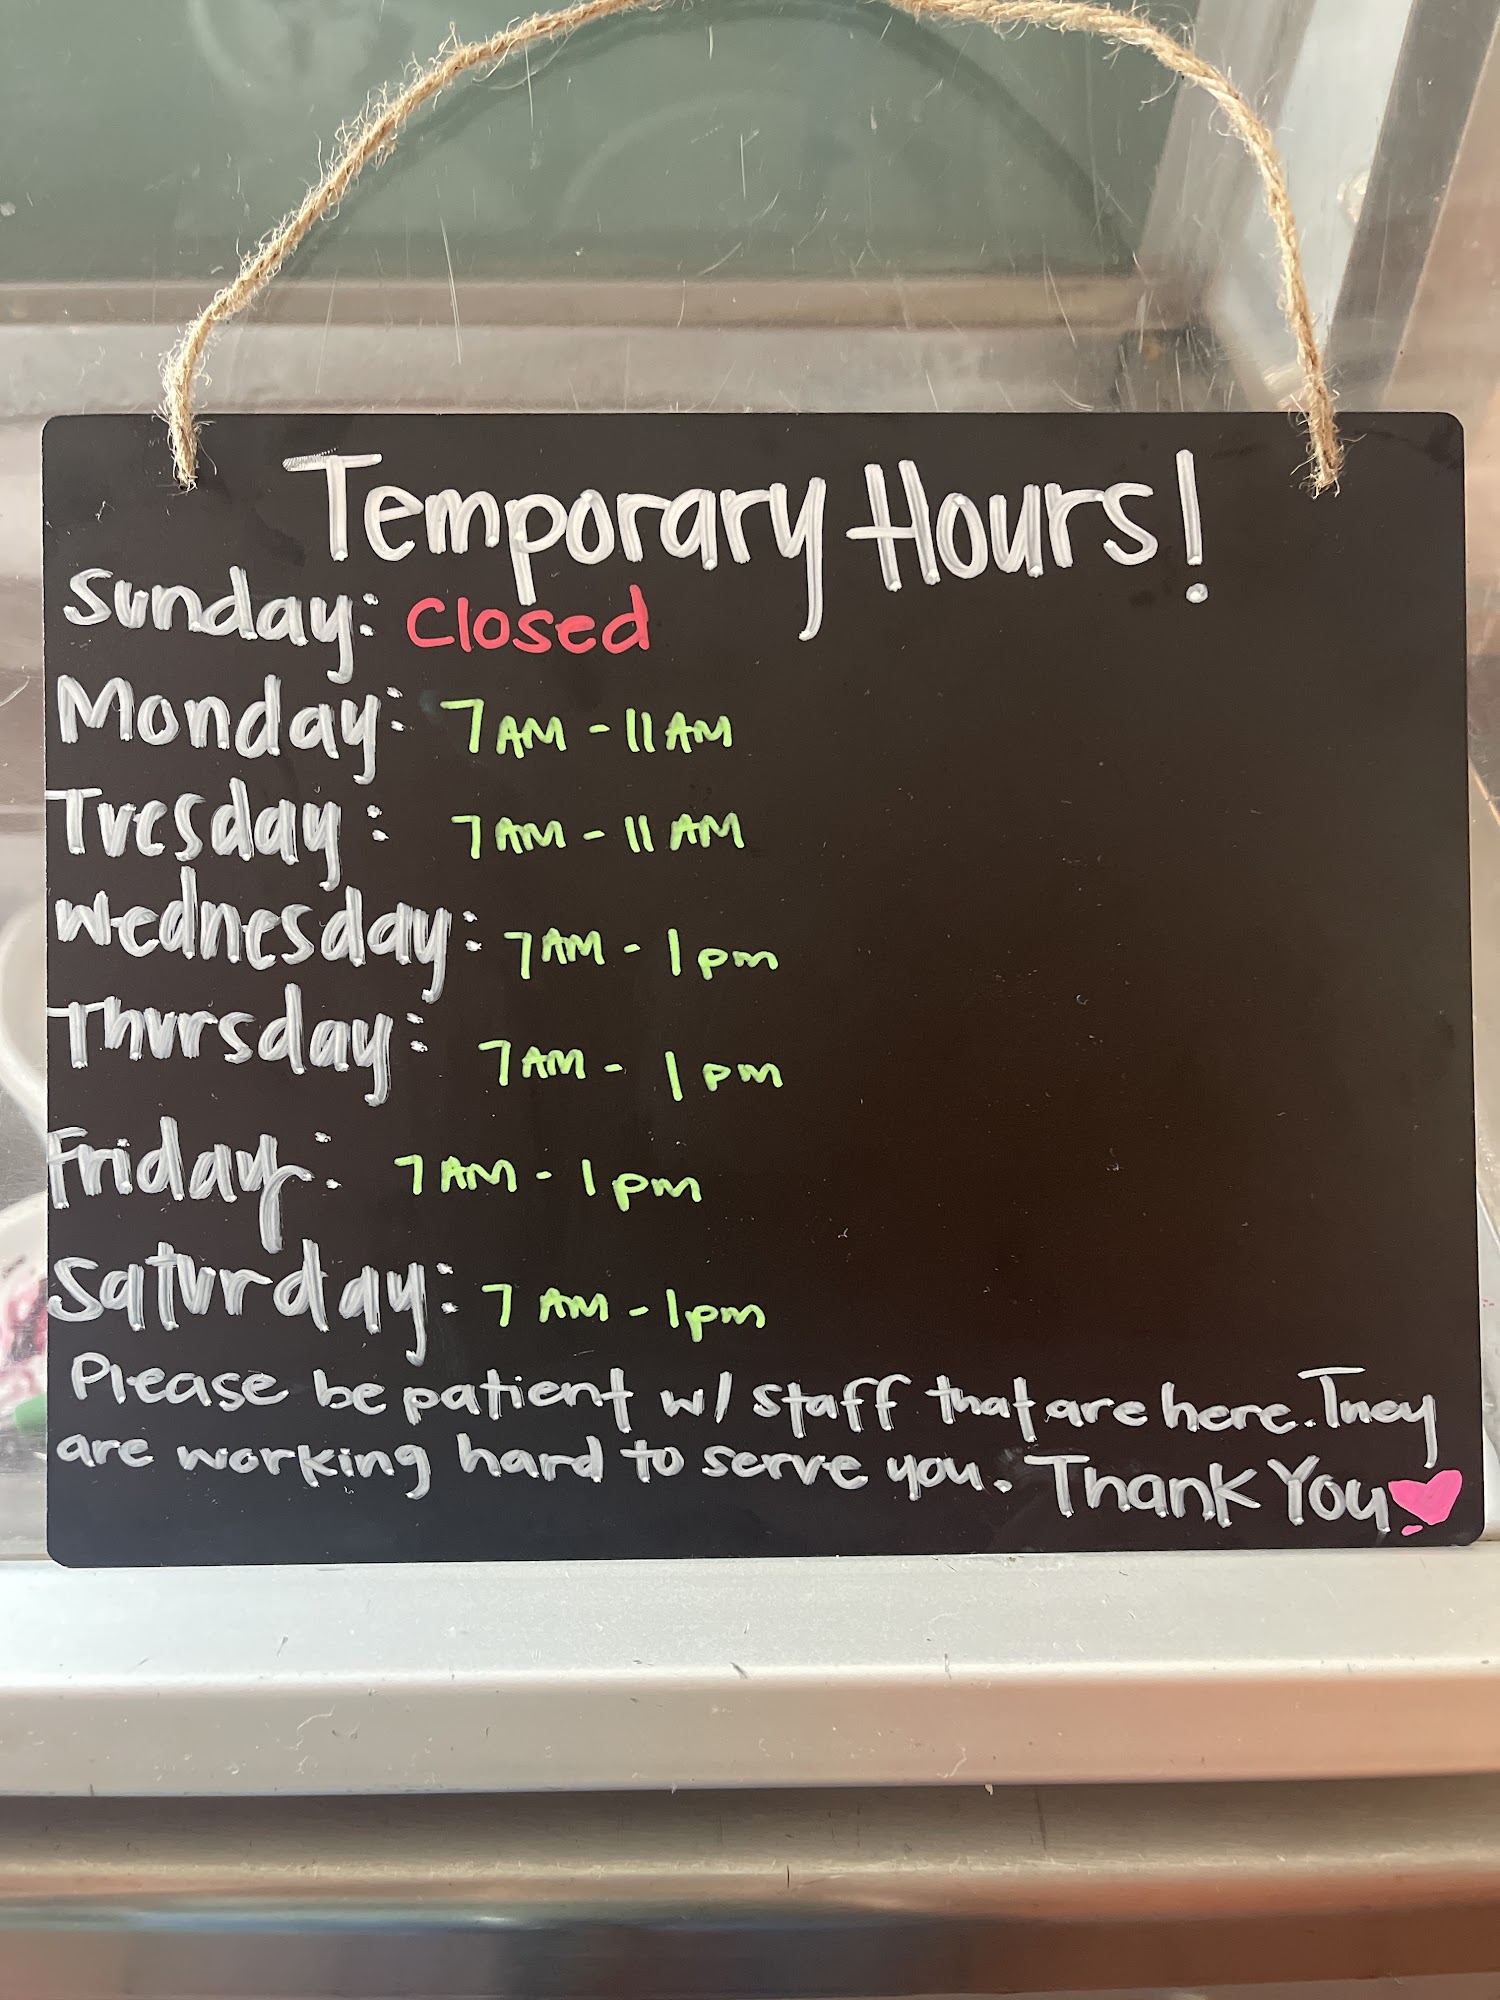 Temporary Hours!
Sunday: Closed
Monday: 7AM - 11AM
Tuesday: 7AM - 11AM
Wednesday: 7AM - 1pm
Thursday: 7AM - 1pm
Friday: 7AM - 1pm
Saturday: 7AM - 1pm
Please be patient w/ staff that are here. They
are working hard to serve you. Thank You